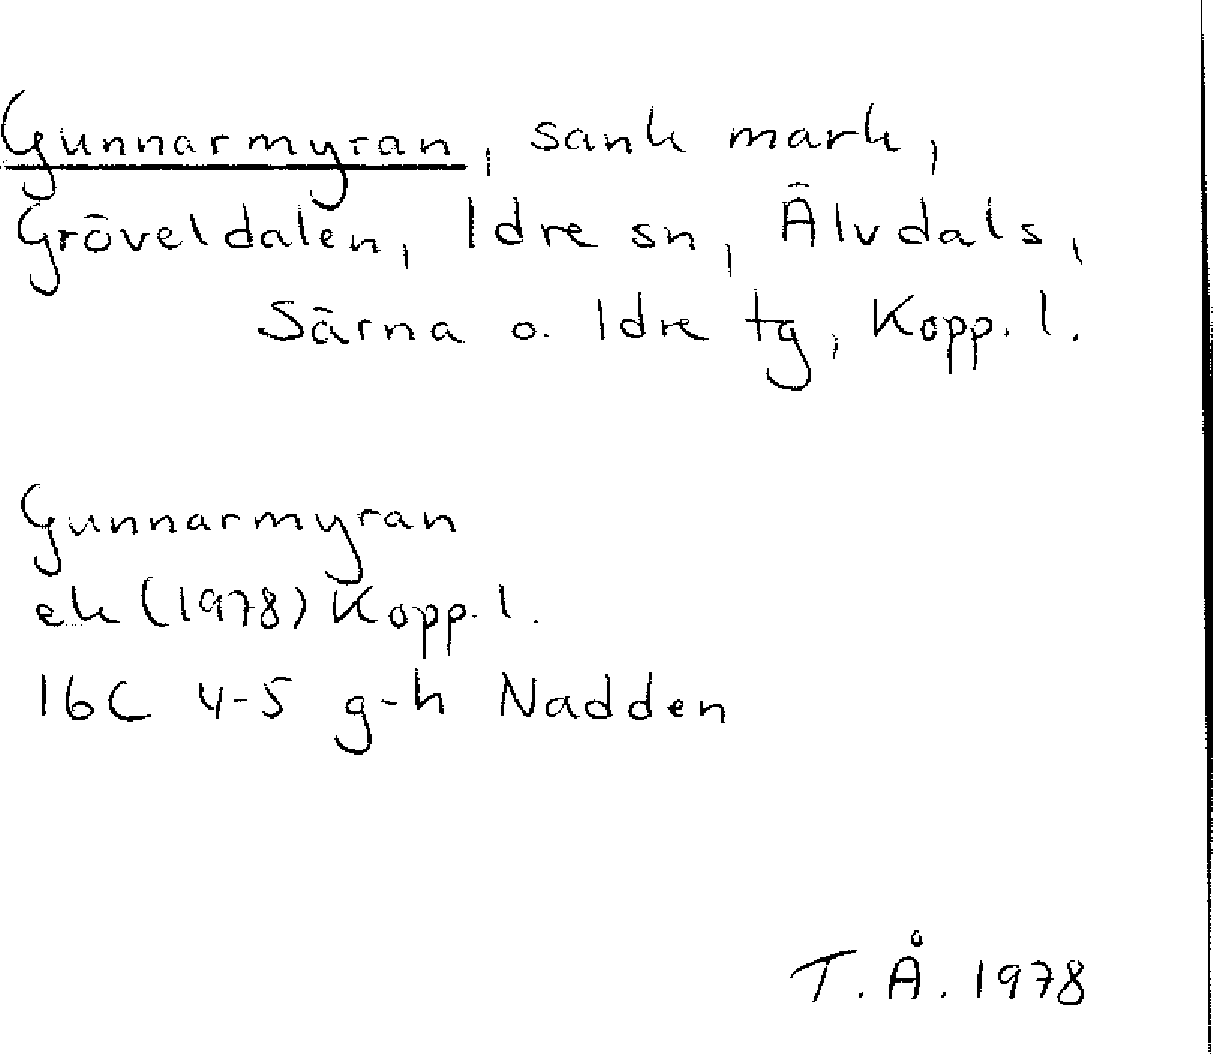 Gunnarmyran, sank mark,
Gröveldalen, Idre sn, Älvdals,
Särna o. Idre tg, Kopp. l.
Gunnarmyran
ek (1978) Kopp. l.
16C 4-5 g-h Nadden
T. Å. 1978